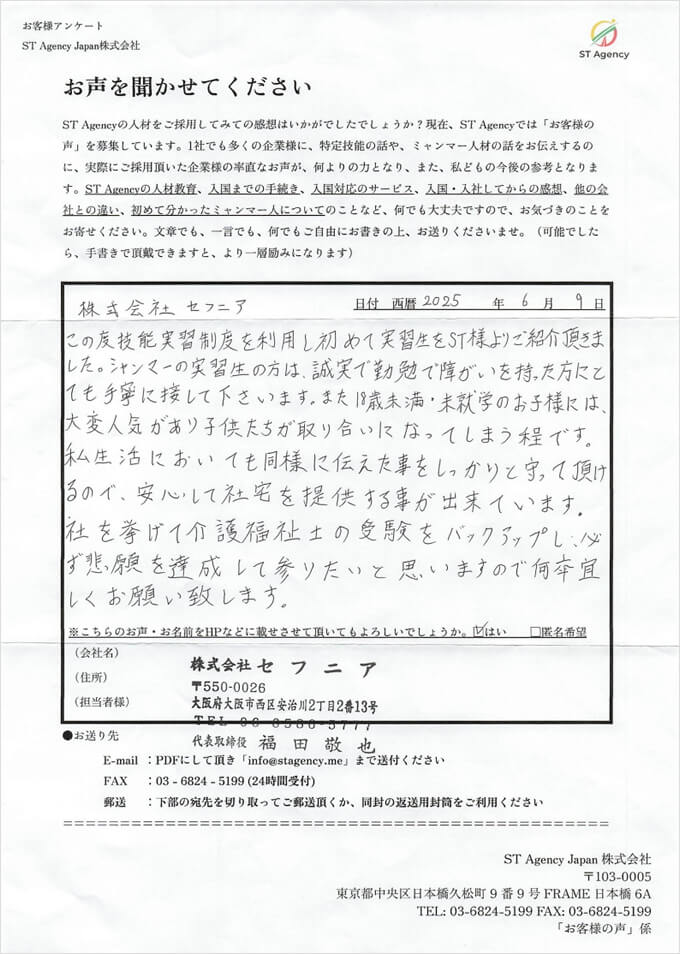 お客様アンケート
ST Agency Japan株式会社
ST Agency
お声を聞かせてください
ST Agencyの人材をご採用してみての感想はいかがでしたでしょうか？現在、ST Agencyでは「お客様の
声」を募集しています。1社でも多くの企業様に、特定技能の話や、ミャンマー人材の話をお伝えするの
に、実際にご採用頂いた企業様の率直なお声が、何よりの力となり、また、私どもの今後の参考となりま
す。ST Agencyの人材教育、入国までの手続き、入国対応のサービス、入国・入社してからの感想、他の会
社との違い、初めて分かったミャンマー人についてのことなど、何でも大丈夫ですので、お気づきのことを
お寄せください。文章でも、一言でも、何でもご自由にお書きの上、お送りくださいませ。（可能でした
ら、手書きで頂戴できますと、より一層励みになります）
株式会社 セフニア 日付 西暦 2025 年 6 月 9 日
この度技能実習制度を利用し初めて実習生をST様よりご紹介頂きま
した。ミャンマーの実習生の方は、誠実で勤勉で障がいを持った方にと
ても丁寧に接して下さいます。また18歳未満・未就学のお子様には、
大変人気があり子供たちが取り合いになってしまう程です。
私生活においても同様に伝えた事をしっかりと守って頂け
るので、安心して社宅を提供する事が出来ています。
社を挙げて介護福祉士の受験をバックアップし、必
ず悲願を達成して参りたいと思いますので何卒宜
しくお願い致します。
※こちらのお声・お名前をHPなどに載せさせて頂いてもよろしいでしょうか。☑はい □匿名希望
（会社名） 株式会社 セフニア
（住所） 〒550-0026
（担当者様） 大阪府大阪市西区安治川2丁目2番13号
TEL 06-6586-5777
●お送り先 代表取締役 福田敬也
E-mail ：PDFにして頂き「info@stagency.me」まで送付ください
FAX ：03 - 6824 - 5199 (24時間受付)
郵送 ：下部の宛先を切り取ってご郵送頂くか、同封の返送用封筒をご利用ください
ST Agency Japan 株式会社
〒103-0005
東京都中央区日本橋久松町 9 番 9 号 FRAME 日本橋 6A
TEL: 03-6824-5199 FAX: 03-6824-5199
「お客様の声」係